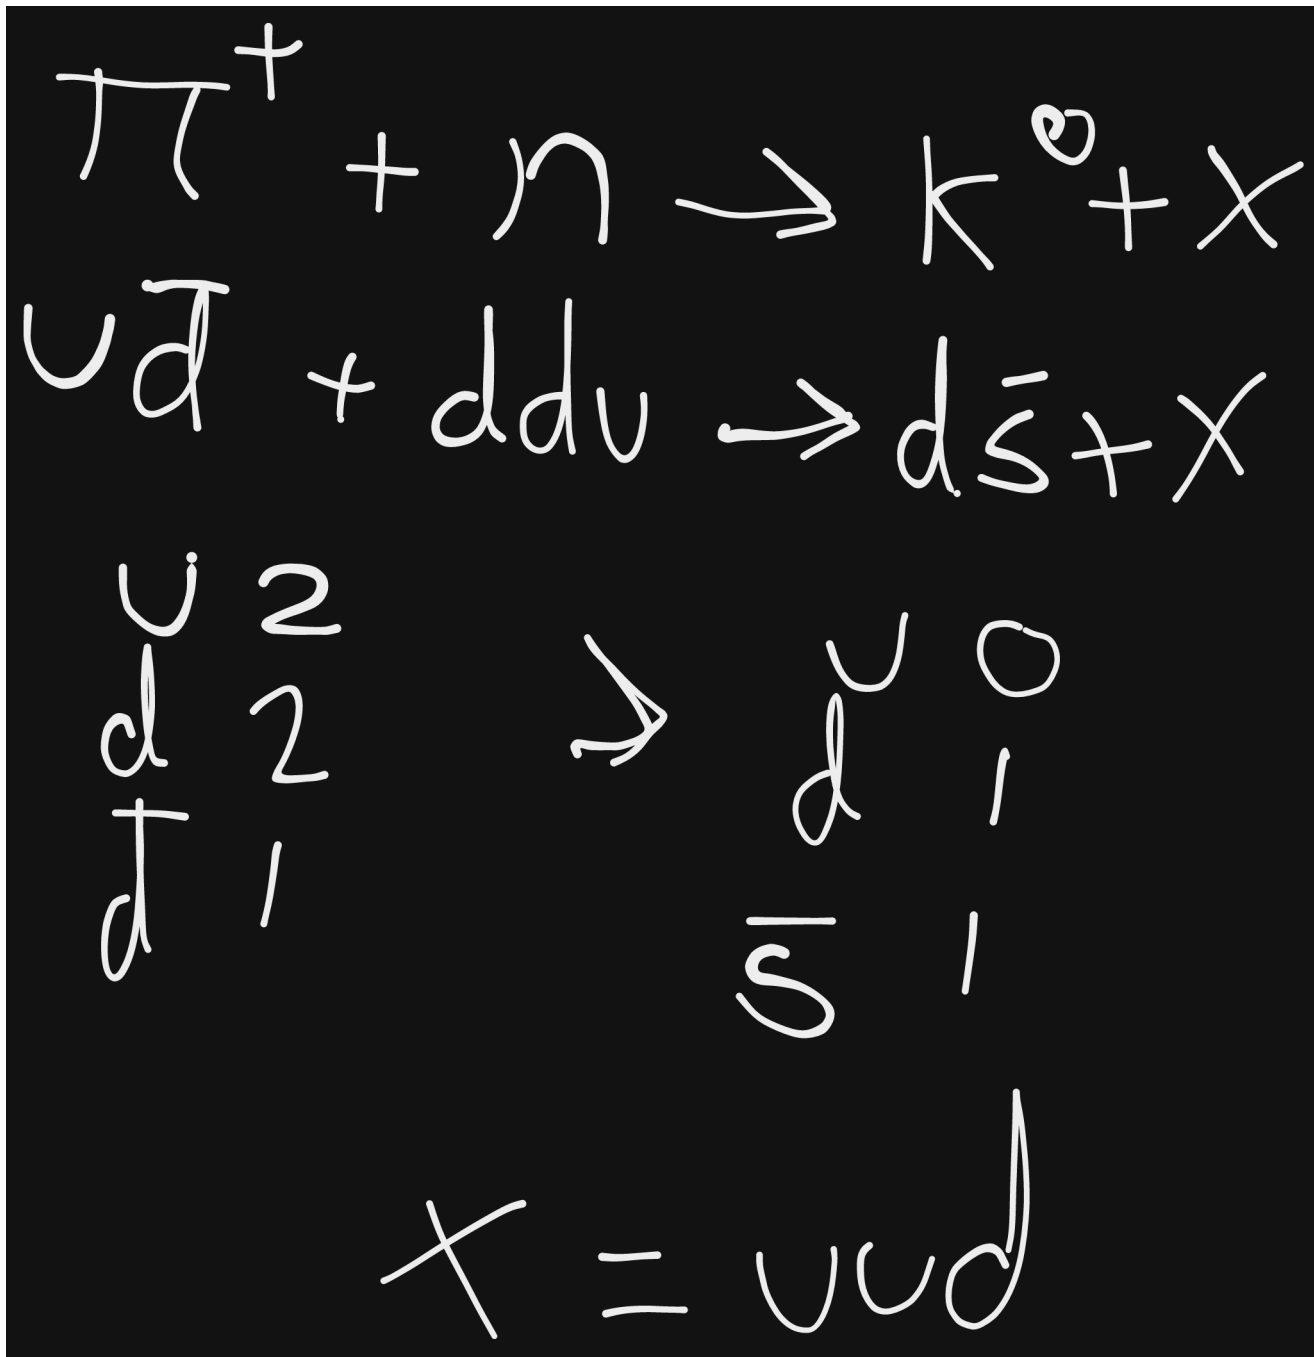 π⁺ + n → k⁰ + X
ud̅ + ddu → ds̅ + X
u 2 → u 0
d 2 d 1
d̅ 1 s̅ 1
X = uud